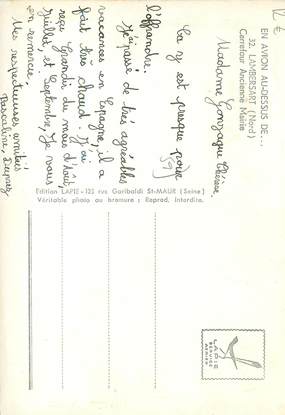 12 €
EN AVION AU-DESSUS DE...
32. LAMBERSART (Nord)
Carrefour Ancienne Mairie
Madame Gonzague Thérèse
(59)
Ça y est presque pour
l'offrande.
J'ai passé de très agréables
vacances en Espagne, il a
fait très chaud. J'ai
reçu Grandir du mois d'Août,
Juillet, et Septembre, Je vous
en remercie.
Mes respectueuses amitiés
Pascaline, Dupuy
Edition LAPIE - 123 rue Garibaldi St-MAUR (Seine)
Véritable photo au bromure : Reprod. Interdite.
LAPIE
SERVICE
AERIEN